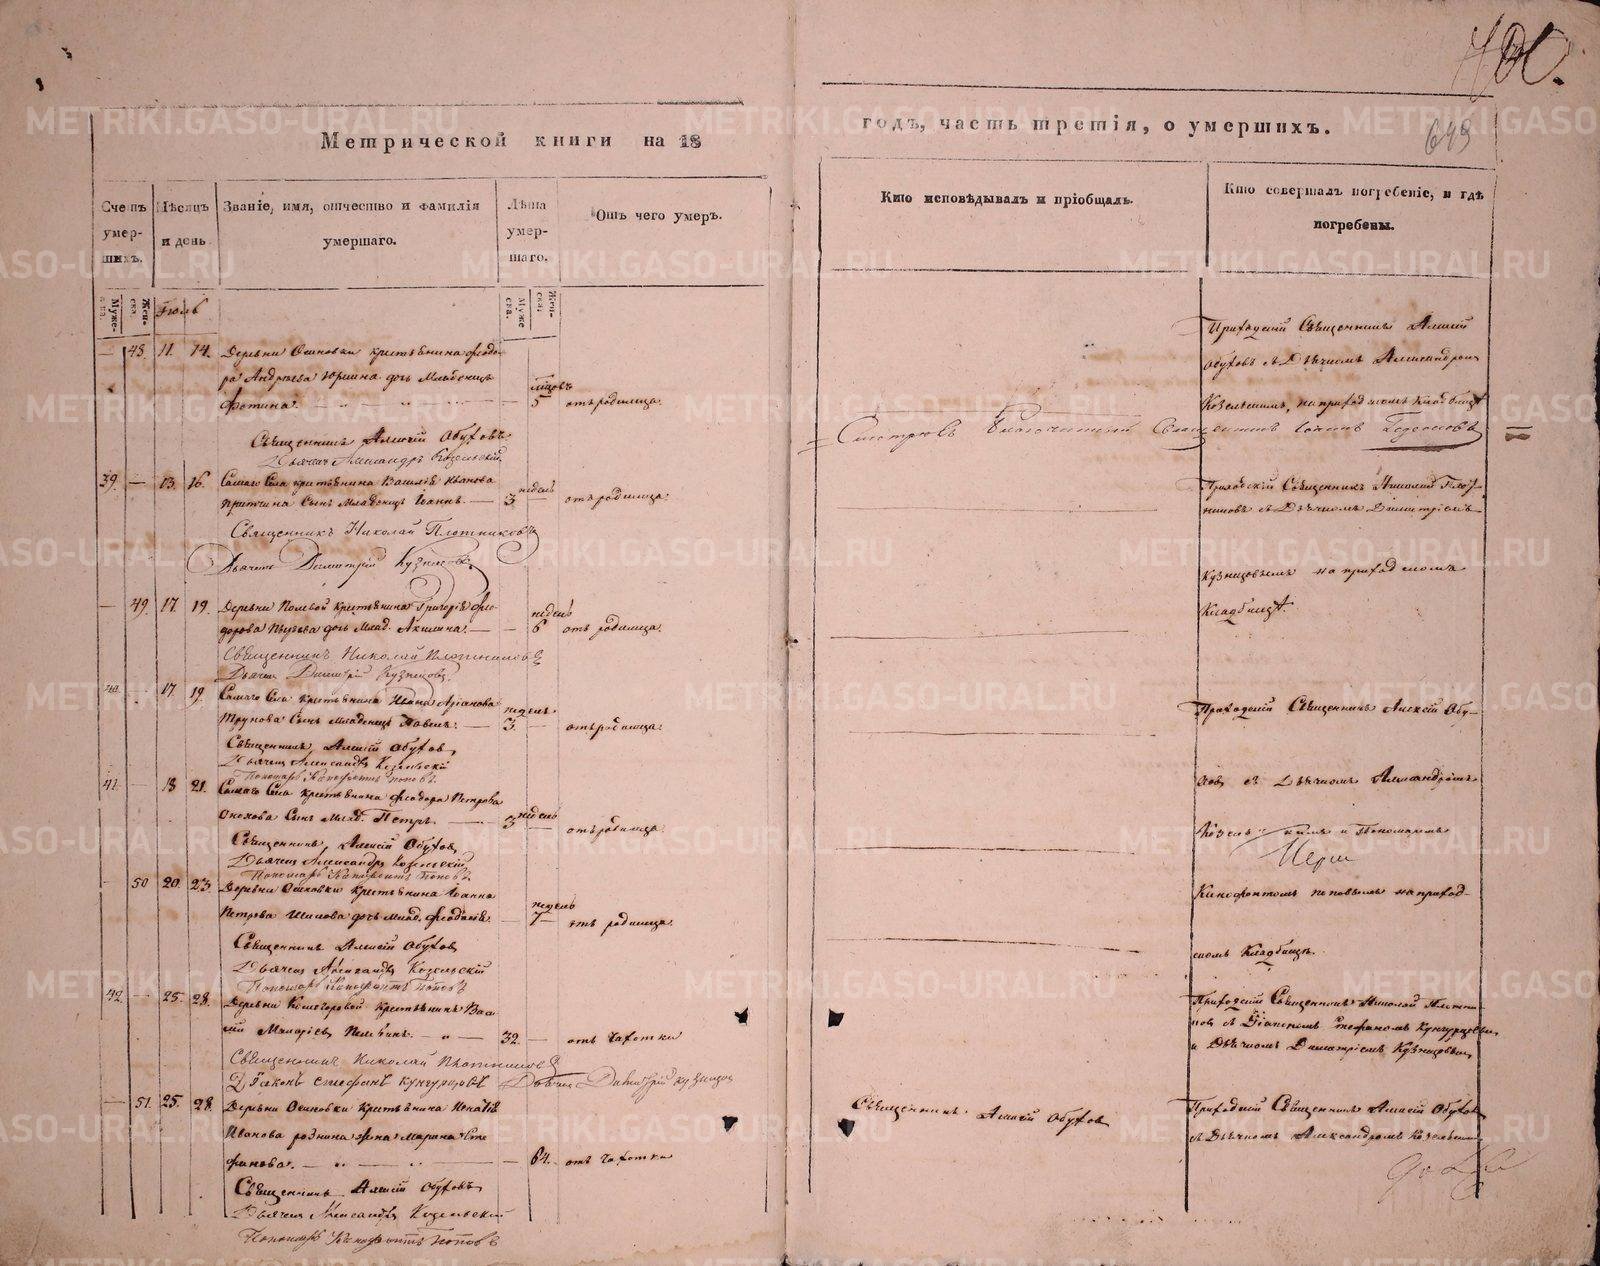 Метрической книги на 18
годъ, часть третія, о умершихъ.
649
Счетъ умер-шихъ.
Мѣсяцъ и день
Званіе, имя, отчество и фамилія умершаго.
Лѣта умер-шаго.
Отъ чего умеръ.
Кто исповѣдывалъ и пріобщалъ.
Кто совершалъ погребеніе, и гдѣ погребены.
Муже-
Жен-
Іюль
48. 11. 14. Деревни Осиновки крестьянина Ѳеодо-
ра Андреева Юршина дочь Младенецъ
Фотина. 5 отъ родимца.
Священникъ Алексій Обуховъ
Дьячекъ Александръ Козельскій
Приходскій Священникъ Алексій
Обуховъ съ Дьячкомъ Александромъ
Козельскимъ, на приходскомъ кладбищѣ
Смотрѣлъ Благочинный Священникъ
39. 13. 16. Самаго Села крестьянина Василія Иванова
сынъ Младенецъ Іоаннъ. 3 недель отъ родимца.
Священникъ Николай Плотниковъ
Дьячекъ Димитрій Кузнецовъ
Приходскій Священникъ Николай Плот-
никовъ съ Дьячкомъ Димитріемъ
Кузнецовымъ на приходскомъ
Кладбищѣ
49. 17 19. Деревни Полевой крестьянина Григорія Ѳео-
дорова дочь Млад. Акилина. недель 6 отъ родимца.
Священникъ Николай Плотниковъ
Дьячекъ Димитрій Кузнецовъ
40. 17 19. Самаго Села крестьянина
Трунова Сынъ Младенецъ Павелъ. недель 3. отъ родимца.
Священникъ Алексій Обуховъ
Дьячекъ Александръ Козельскій
Пономарь Ксенофонтъ Поповъ
Приходскій Священникъ Алексій Обу-
ховъ съ Дьячкомъ Александромъ
Козельскимъ и Пономаремъ
41. 18 21. Самаго Села крестьянина Ѳеодора Петрова
Сынъ Млад. Петръ. недель 3 отъ родимца.
Священникъ Алексій Обуховъ
Дьячекъ Александръ Козельскій
Пономарь Ксенофонтъ Поповъ
50 20. 23 Деревни Осиновки крестьянина Іоанна
Петрова Шилова дочь млад. Ѳеодосія. недель 7 отъ родимца.
Священникъ Алексій Обуховъ
Дьячекъ Александръ Козельскій
Пономарь Ксенофонтъ Поповъ
Ксенофонтомъ Поповымъ на приход-
скомъ Кладбищѣ.
42. 25. 28. Деревни крестьянинъ Васи-
лій 32. отъ чахотки
Священникъ Николай Плотниковъ
Діаконъ Стефанъ Кунгурцовъ Дьячекъ Димитрій Кузнецовъ
Приходскій Священникъ Николай Плотни-
ковъ съ Діакономъ Стефаномъ Кунгурцовымъ
и Дьячкомъ Димитріемъ Кузнецовымъ
51. 25. 28. Деревни Осиновки крестьянина Игнатія
Иванова жена Марина Сте-
фанова. 64. отъ чахотки
Священникъ Алексій Обуховъ
Дьячекъ Александръ Козельскій
Пономарь Ксенофонтъ Поповъ
Священникъ Алексій Обуховъ
Приходскій Священникъ Алексій Обуховъ
съ Дьячкомъ Александромъ Козельскимъ
METRIKI.GASO-URAL.RU